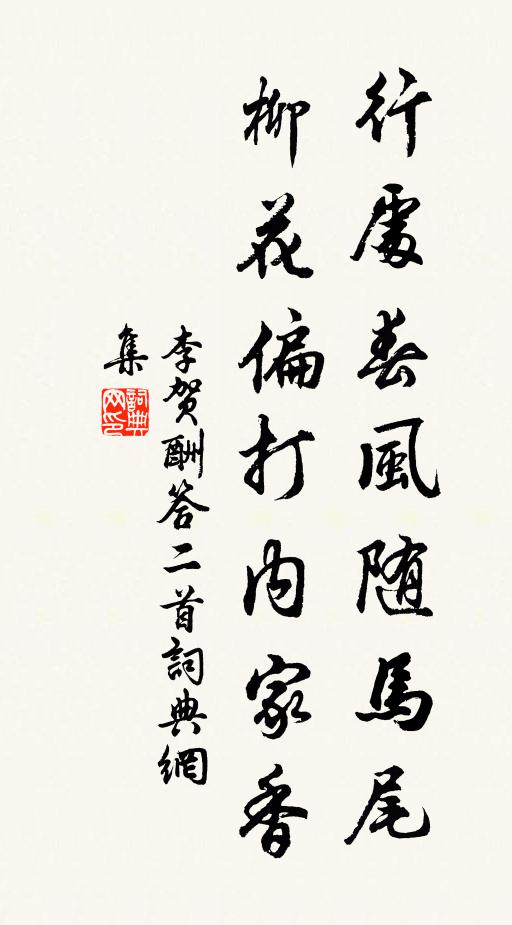 行處春風随馬尾
柳花偏打内家香
李賀酬答二首詞典網
集
詞典
网印